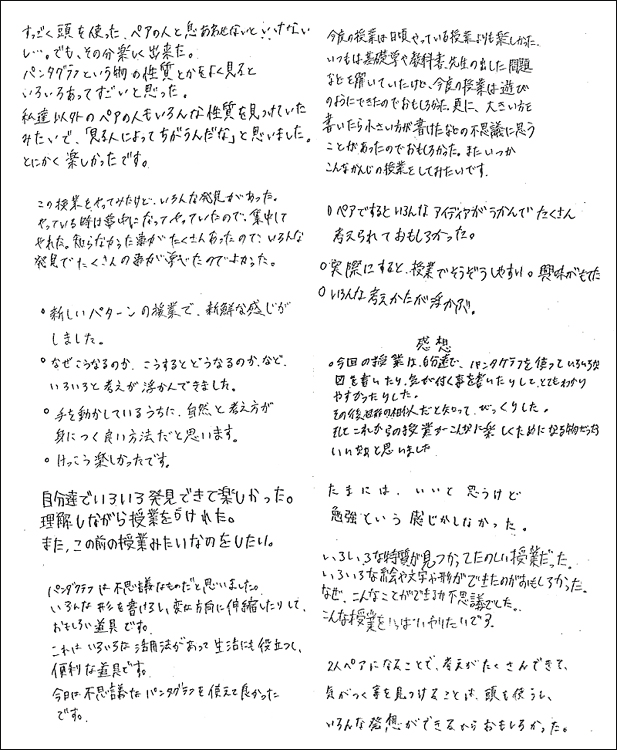 すっごく頭を使った、ペアの人と息あわせないといけないし…。でも、その分楽しく出来た。
パンタグラフという物の性質とかをよく見ると
いろいろあってすごいと思った。
私達以外のペアの人もいろんな性質を見つけていた
みたいで、「見る人によってちがうんだな」と思いました。
とにかく楽しかったです。
この授業をやってみたけど、いろんな発見があった。
やっている時は夢中になってやっていたので、集中して
やれた。知らなかった事がたくさんあったので、いろんな
発見でたくさんの事が学べたのでよかった。
○新しいパターンの授業で、新鮮な感じが
しました。
○なぜこうなるのか、こうするとどうなるのか、など、
いろいろと考えが浮かんできました。
○手を動かしているうちに、自然と考え方が
身につく良い方法だと思います。
○けっこう楽しかったです。
自分達でいろいろ発見できて楽しかった。
理解しながら授業をうけれた。
また、この前の授業みたいなのをしたい。
パンタグラフは不思議なものだと思いました。
いろんな形を書けるし、変な方向に伸縮したりして、
おもしろい道具です。
これはいろいろな活用法があって生活にも役立つし、
便利な道具です。
今日は不思議なパンタグラフを使えて良かった
です。
今度の授業は日頃やっている授業よりも楽しかった。
いつもは基礎学や教科書、先生の出した問題
などを解いていたけど、今度の授業は遊び
のようにできたのでおもしろかった。更に、大きい方を
書いたら小さい方が書けたなどの不思議に思う
ことがあったのでおもしろかった。またいつか
こんなかんじの授業をしてみたいです。
○ペアでするといろんなアイディアがうかんでたくさん
考えられておもしろかった。
○実際にすると、授業でそうぞうしやすい。興味がもてた
○いろんな考えかたが浮かぶ。
感想
○今回の授業は、自分達で、パンタグラフを使っていろいろな
図を書いたり、気が付く事を書いたりして、とてもわかり
やすかったりした。
その後、相似だと知って、びっくりした。
そしてこれからの授業がこんなに楽しくためになる物だったら
いいなぁと思いました
たまには、いいと思うけど
勉強という感じがしなかった。
いろいろな特質が見つかってたのしい授業だった。
いろいろな絵や文字や形ができたのがおもしろかった。
なぜ、こんなことができるか不思議でした。
こんな授業をいっぱいやりたいです。
2人ペアになることで、考えがたくさんできて、
気がつく事を見つけることは、頭を使うし、
いろんな発想ができるからおもしろかった。